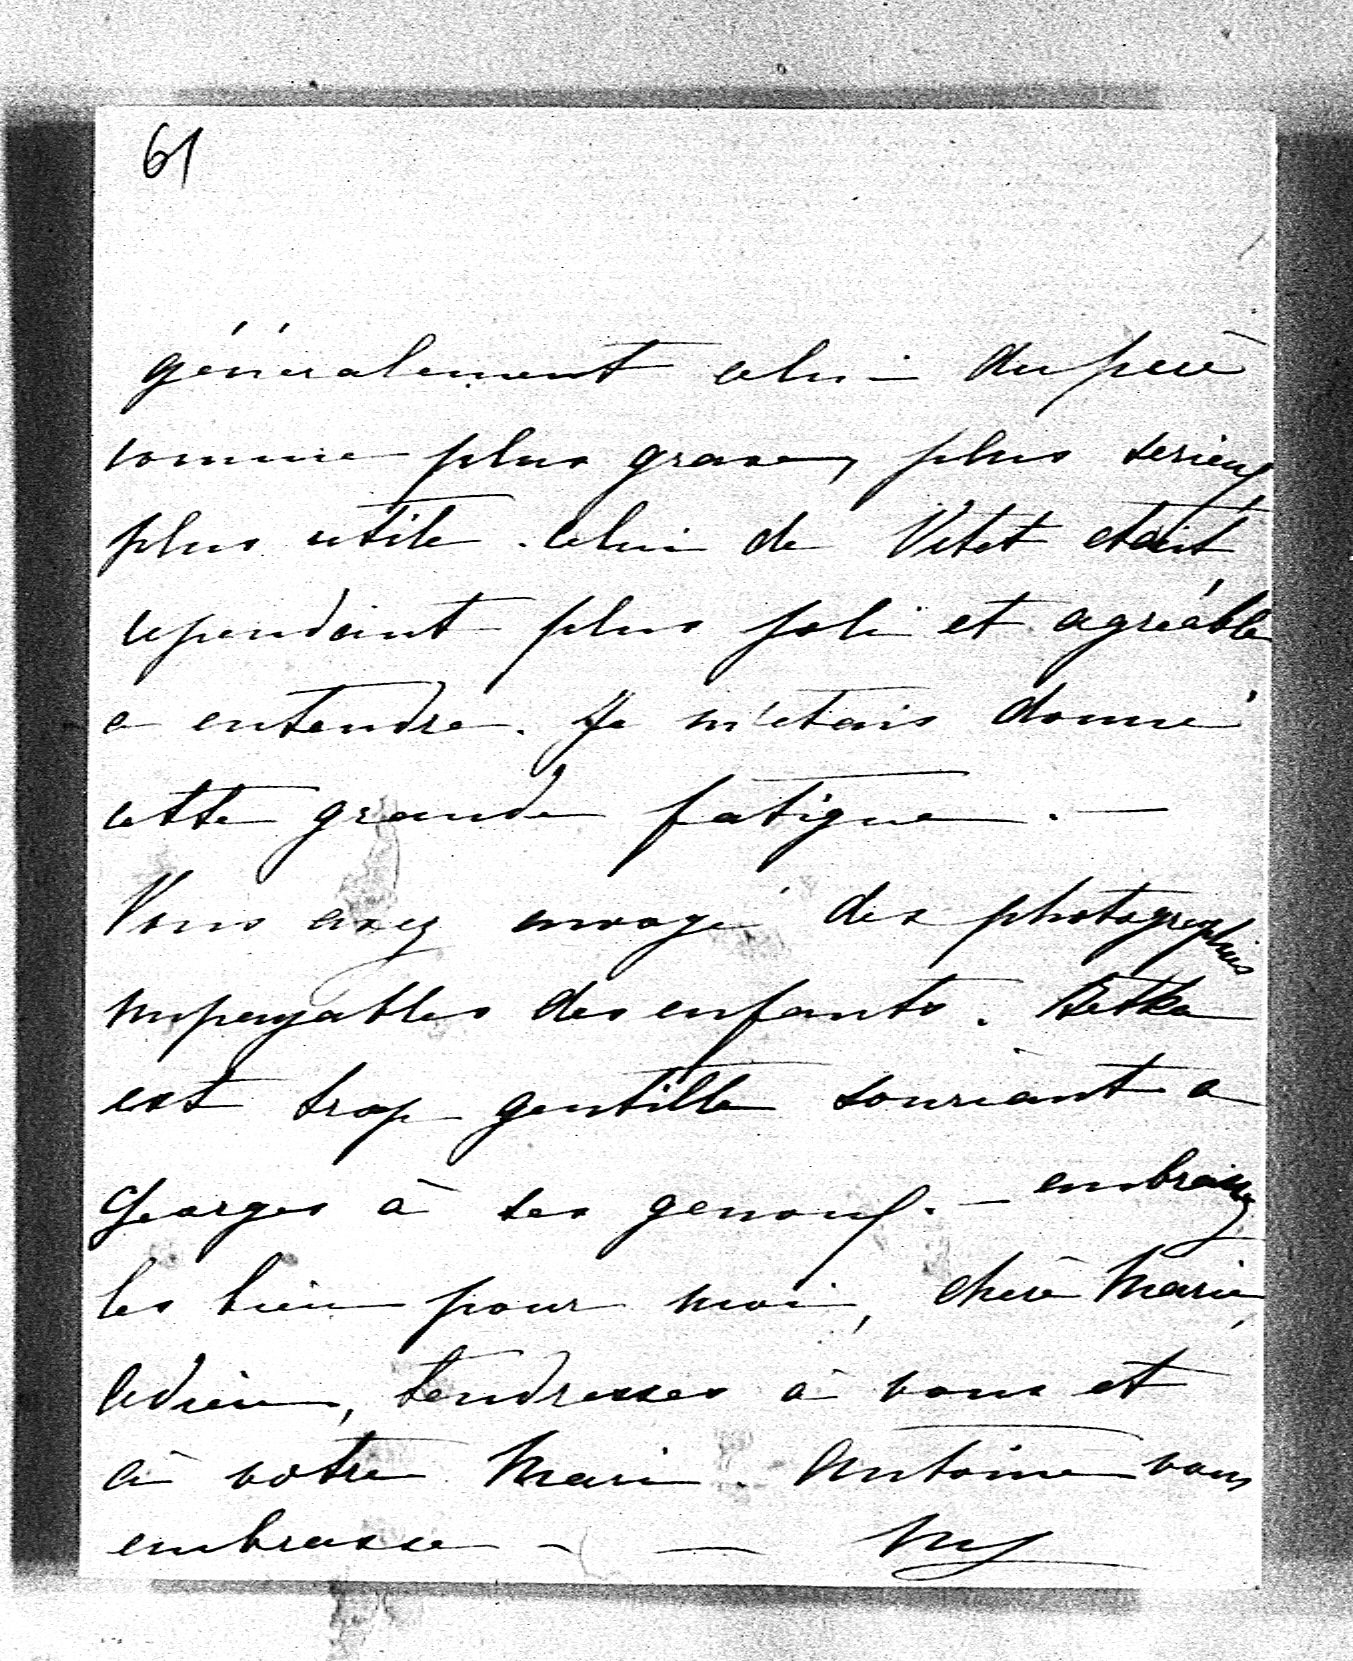 61
généralement celui du père
comme plus grave, plus serieux,
plus utile. Celui de Vitet etait
cependant plus joli et agréable
a entendre. Je m'etais donné
cette grande fatigue. —
Vous avez envoyé des photographies
impayables des enfants. Betka
est trop gentille souriant a
Georges à ses genoux. — embrassez
les bien pour moi, chère Marie,
Adieu, tendresses à vous et
à votre Mari. Antoine vous
embrasse - —